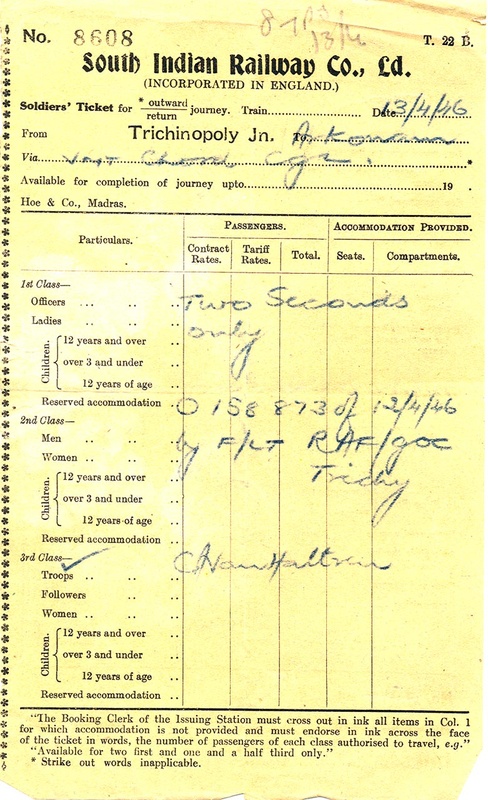 13/4
No. 8608 T. 22 B.
South Indian Railway Co., Ld.
(INCORPORATED IN ENGLAND.)
Soldiers' Ticket for * outward / return journey. Train.......... Date 13/4/46
From Trichinopoly Jn. To Arkonam
Via Chord
Available for completion of journey upto.......... 19 .
Hoe & Co., Madras.
Particulars. PASSENGERS. ACCOMMODATION PROVIDED.
Contract Rates. Tariff Rates. Total. Seats. Compartments.
1st Class—
Officers Two Seconds
Ladies only
Children. 12 years and over
over 3 and under
12 years of age
Reserved accommodation O 158 873 of 13/4/46
2nd Class—
Men by F/LT RAF/
Women Trichy
Children. 12 years and over
over 3 and under
12 years of age
Reserved accommodation
3rd Class—
Troops
Followers
Women
Children. 12 years and over
over 3 and under
12 years of age
Reserved accommodation
"The Booking Clerk of the Issuing Station must cross out in ink all items in Col. 1
for which accommodation is not provided and must endorse in ink across the face
of the ticket in words, the number of passengers of each class authorised to travel, e.g."
"Available for two first and one and a half third only."
* Strike out words inapplicable.